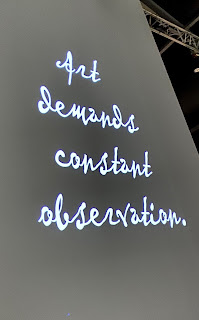 Art
demands
constant
observation.